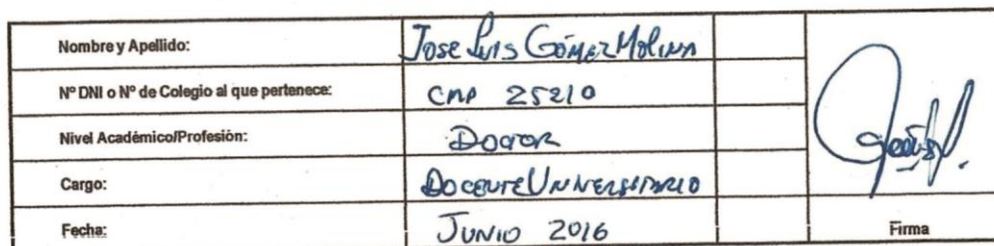 Nombre y Apellido: Jose Luis Gómez Molina
Nº DNI o Nº de Colegio al que pertenece: CMP 25210
Nivel Académico/Profesión: Doctor
Cargo: Docente Universitario
Fecha: Junio 2016
Firma